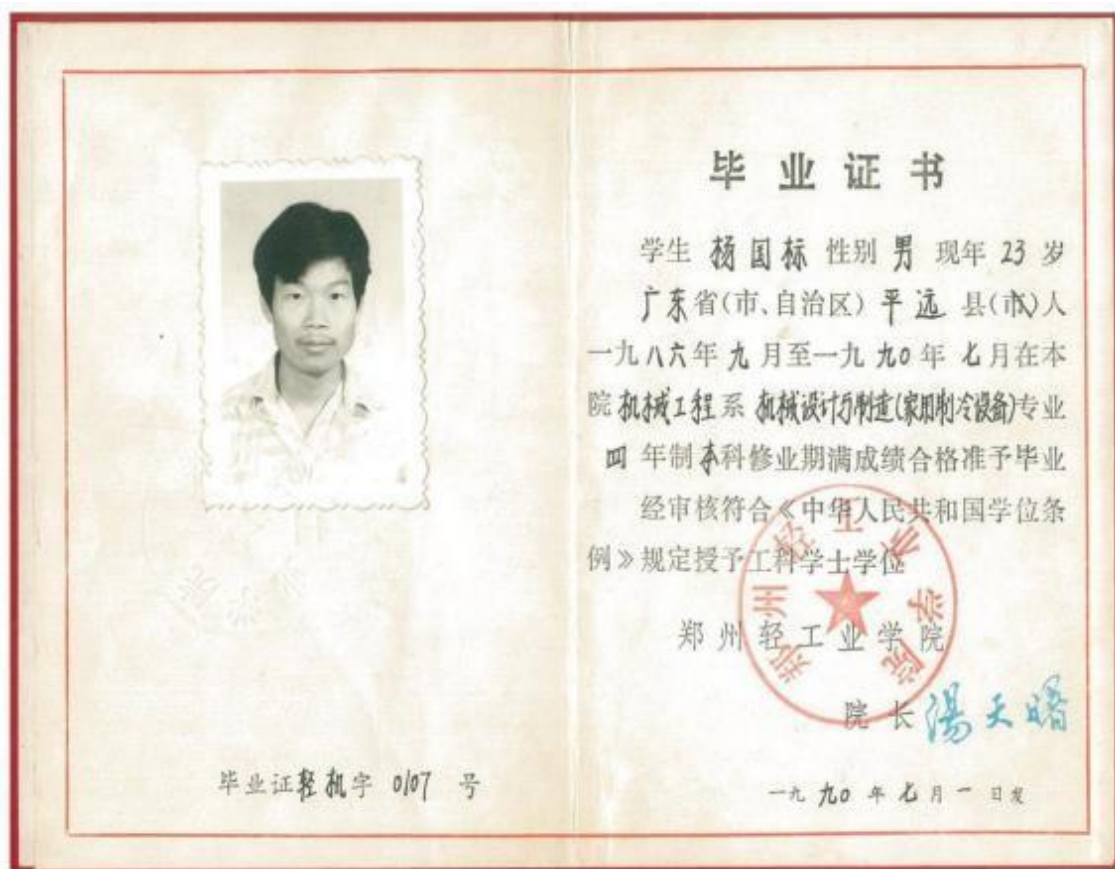 毕业证书
学生 杨国标 性别 男 现年 23 岁
广东省(市、自治区) 平远 县(市)人
一九八六年九月至一九九0年七月在本
院机械工程系 机械设计与制造(家用制冷设备)专业
四年制本科修业期满成绩合格准予毕业
经审核符合《中华人民共和国学位条
例》规定授予工科学士学位
郑州轻工业学院
郑州轻工业学院
院长 湯天曙
一九九0年七月一日发
毕业证轻机字 0107 号